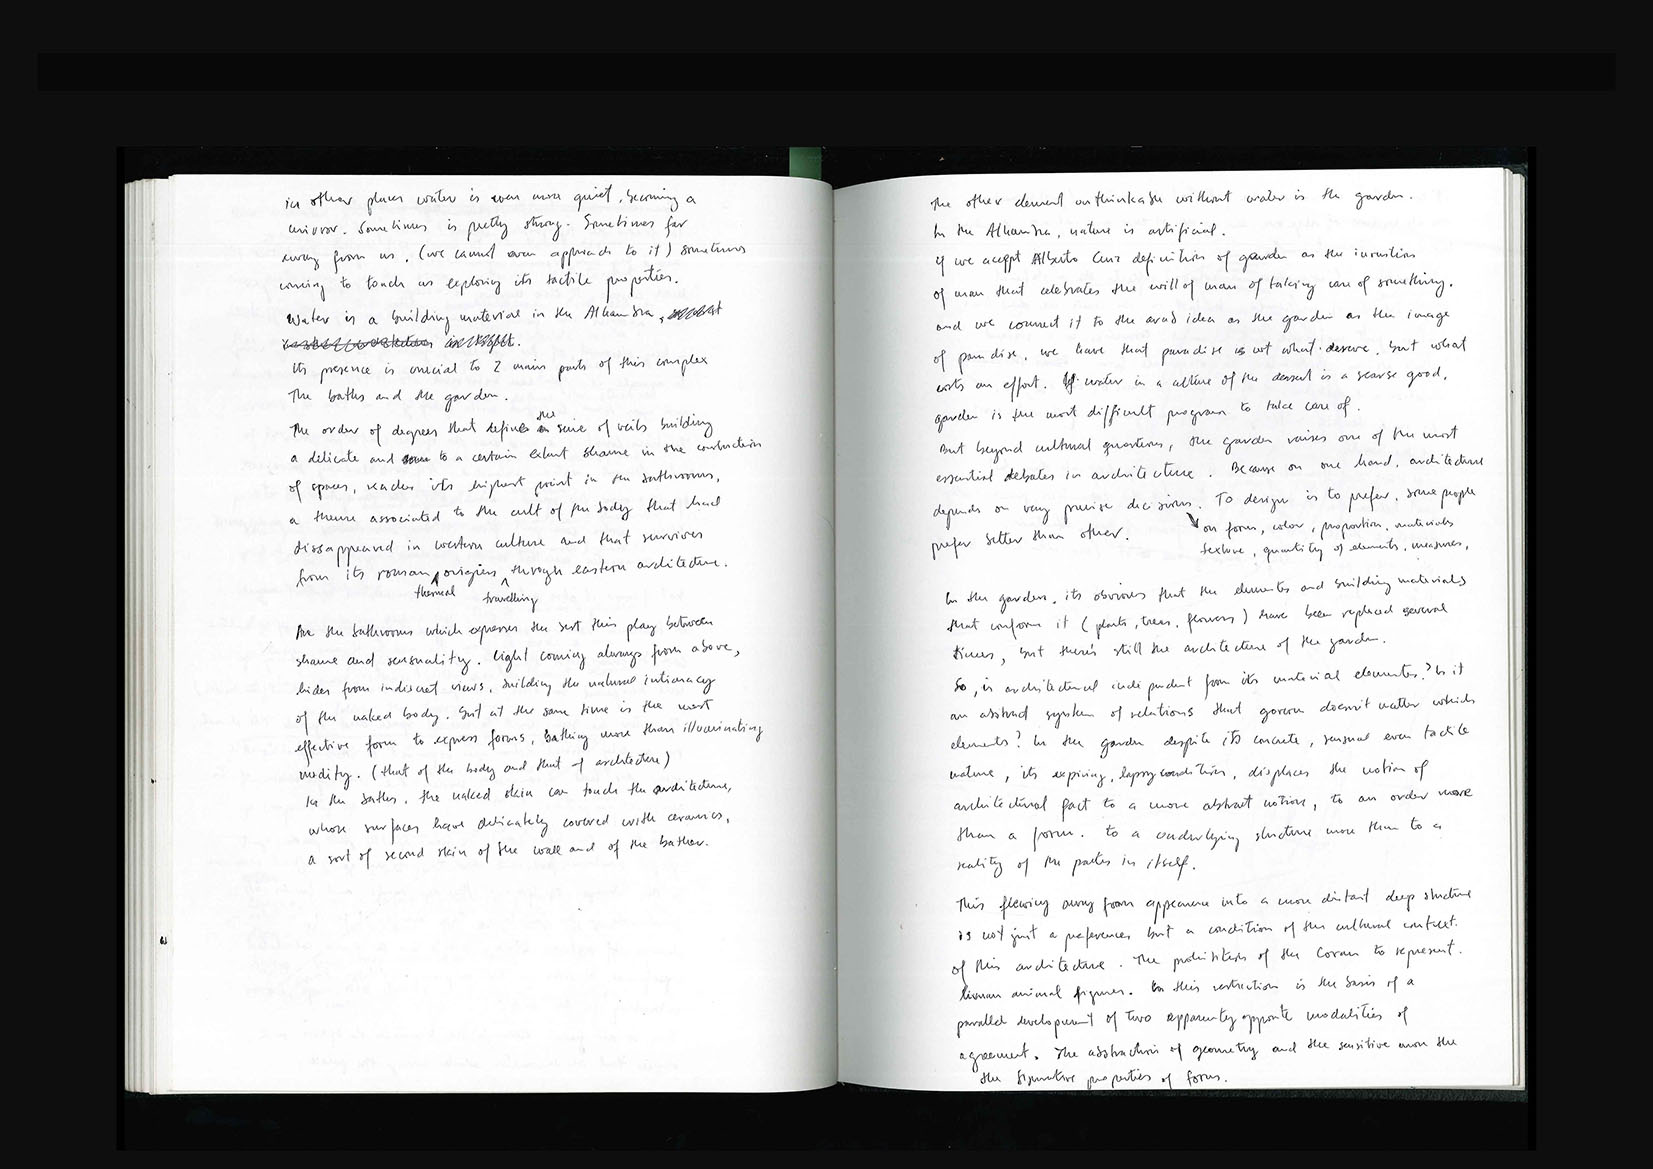 in other places water is even more quiet, becoming a
mirror. Sometimes is pretty strong. Sometimes far
away from us, (we cannot even approach to it) sometimes
coming to touch us exploring its tactile properties.
Water is a building material in the Alhambra,
Its presence is crucial to 2 main parts of this complex
The baths and the garden.
The order of degrees that define the serie of veils building
a delicate and to a certain extent shame in the construction
of spaces, reaches its highest point in the bathrooms,
a theme associated to the cult of the body that had
dissappeared in western culture and that survives
from its roman origins through eastern architecture.
thermal travelling
the bathrooms which expresses the best this play between
shame and sensuality. Light coming always from above,
hides from indiscret views, building the natural intimacy
of the naked body. But at the same time is the most
effective form to express forms, bathing more than illuminating
nudity. (that of the body and that of architecture)
In the baths, the naked skin can touch the architecture,
whose surfaces have delicately covered with ceramics,
a sort of second skin of the wall and of the bather.
The other element unthinkable without water is the garden.
In the Alhambra, nature is artificial.
if we accept Alberto definition of garden as the invention
of man that celebrates the will of man of taking care of something.
and we connect it to the arab idea as the garden as the image
of paradise, we have that paradise is not what deserve, but what
costs an effort. If water in a culture of the dessert is a scarse good,
garden is the most difficult program to take care of.
But beyond cultural questions, the garden raises one of the most
essential debates in architecture. Because on one hand, architecture
depends on very precise decisions. To design is to prefer, some people
prefer better than other.
on form, color, proportion, materials
texture, quantity of elements, measures,
In the garden, its obvious that the elements and building materials
that conform it (plants, trees, flowers) have been replaced several
times, but there's still the architecture of the garden.
So, is architectural independent from its material elements? Is it
an abstract system of relations that govern doesn't matter which
elements? In the garden despite its concrete, sensual even tactile
nature, its expiring, condition, displaces the notion of
architectural fact to a more abstract notion, to an order more
than a form. to a underlying structure more than to a
reality of the parts in itself.
This flowing away from appearence into a more distant deep structure
is not just a preferences but a condition of the cultural context.
of this architecture. The prohibition of the Coran to represent
human animal figures. In this restriction is the basis of a
parallel development of two apparently opposite modalities of
agreement. The abstraction of geometry and the sensitive more the
the figurative properties of forms.